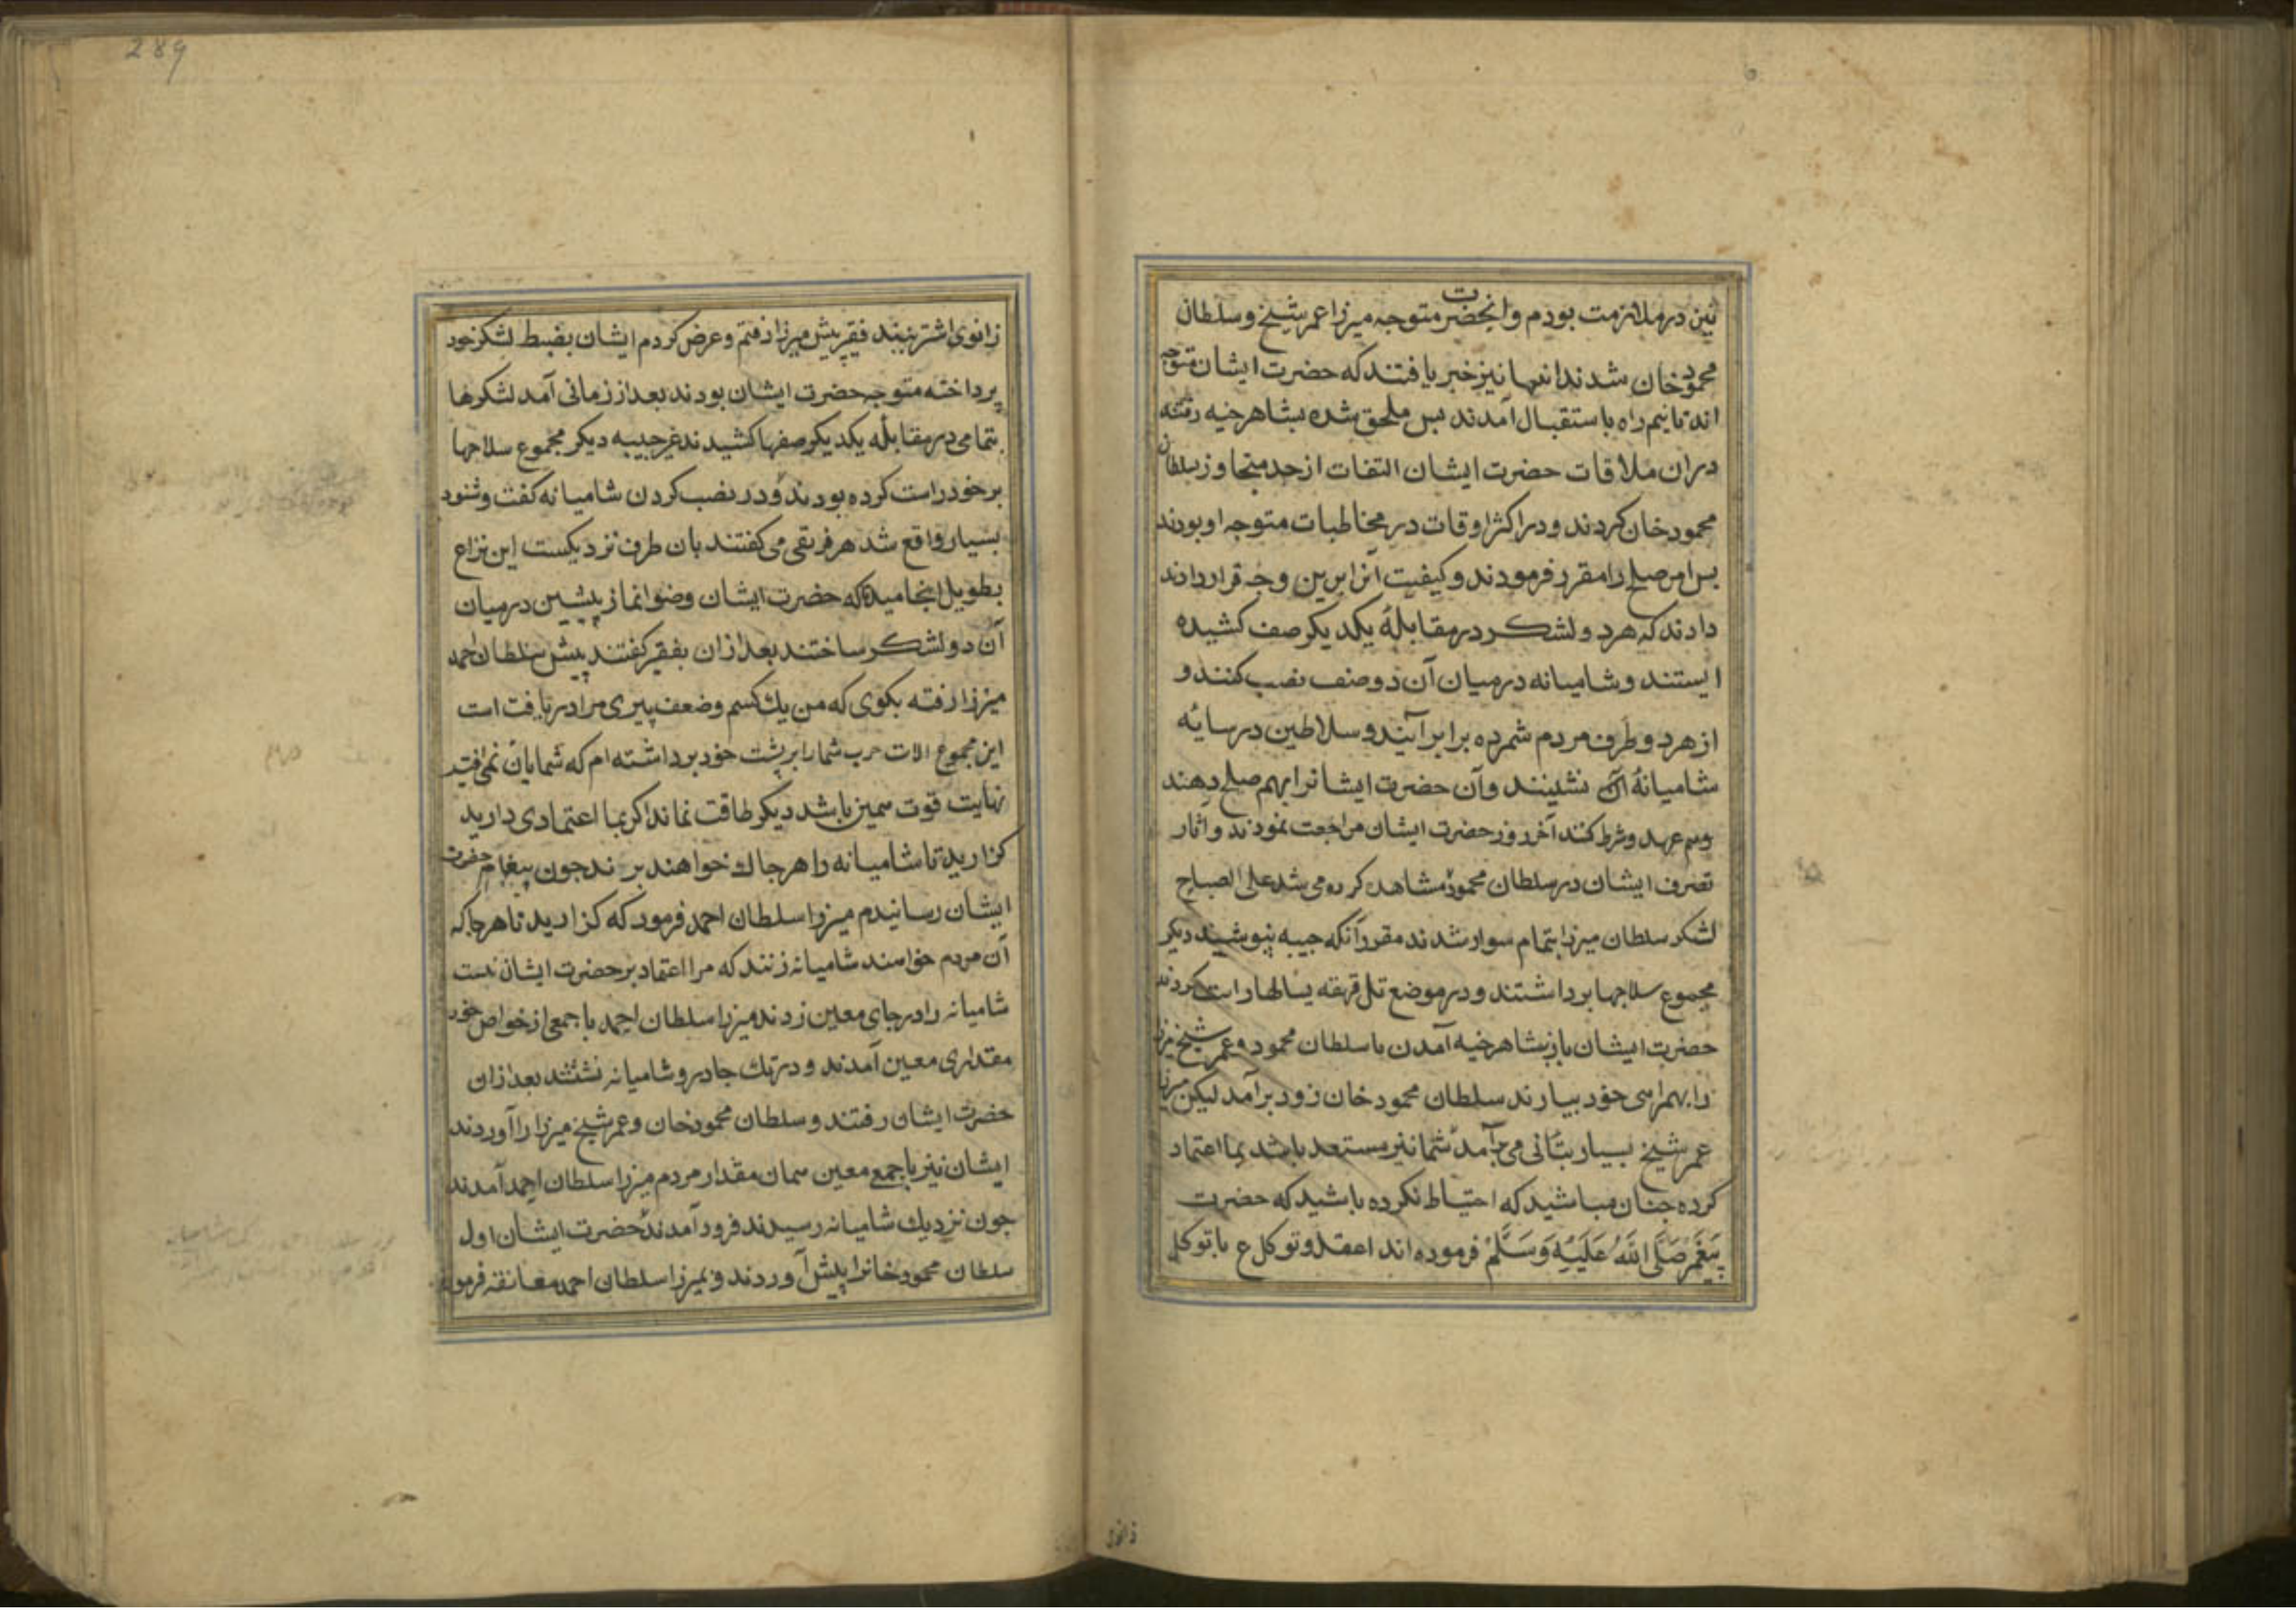 نین در ملازمت بودم و انحضرت متوجه میرزا عمر شیخ و سلطان
محمود خان شدند انها نیز خبر یافتند که حضرت ایشان متوجه
اند تا نیم راه باستقبال آمدند بس ملحق شده بشاهرخیه رفته
دران ملاقات حضرت ایشان التفات از حد متجاوز بسلطان
محمود خان کردند و در اکثر اوقات در مخاطبات متوجه او بودند
بس امر صلح را مقرر فرمودند و کیفیت انرا برین وجه قرار دادند
دادند که هر دو لشکر در مقابلهٔ یکدیکر صف کشیده
ایستند و شامیانه در میان آن دو صف نصب کنند و
از هر دو طرف مردم شمرده برابر آیند و سلاطین در سایهٔ
شامیانهٔ نشینند و آن حضرت ایشانرا بهم صلح دهند
وسم عهد و شرط کنند آخر روز حضرت ایشان مراجعت نمودند و اثار
تصرف ایشان در سلطان محمود مشاهده کرده می شد علی الصباح
لشکر سلطان میرزا بتمام سوار شدند مقرر آنکه جیبه نپوشیند دیکر
مجموع سلاحها برداشتند و در موضع تل قهقه یسالها راست کردند
حضرت ایشان باز بشاهرخیه آمدن با سلطان محمود و عمر شیخ میرزا
را بهمراهی خود بیارند سلطان محمود خان زود برآمد لیکن میرزا
عمر شیخ بسیار بتانی می برآمد شما نیز مستعد باشید بما اعتماد
کرده جنان مباشید که احتیاط نکرده باشید که حضرت
پیغمبر صَلَّی اللهُ عَلَیْهِ وَسَلَّمْ فرموده اند اعقد و توکل ع با توکل
زانوی
289
زانوی اشتر ببند فقیر پیش میرزا رفتم و عرض کردم ایشان بضبط لشکر خود
پرداخته متوجه حضرت ایشان بودند بعد از زمانی آمد لشکرها
بتمامی در مقابله یکدیکر صفها کشیدند غیر جیبه دیکر مجموع سلاحها
بر خود راست کرده بودند و در نصب کردن شامیانه کفت و شنود
بسیار واقع شد هر فریقی می کفتند بان طرف نزدیکست این نزاع
بطویل انجامید که حضرت ایشان وضو نماز پیشین در میان
آن دو لشکر ساختند بعد ازان بفقیر کفتند پیش سلطان احمد
میرزا رفته بکوی که من یک کسم و ضعف پیری مرا دریافت است
این مجموع الات حرب شما را بر پشت خود برداشته ام که شمایان نمی افتید
نهایت قوت سمین باشد دیکر طاقت نماند اکر بما اعتمادی دارید
کزارید تا شامیانه را هر جاک خواهند برند جون پیغام حضرت
ایشان رسانیدم میرزا سلطان احمد فرمود که کزارید تا هر جا که
آن مردم خواهند شامیانه زنند که مرا اعتقاد بر حضرت ایشان هست
شامیانه را در جای معین زدند میرزا سلطان احمد با جمعی از خواص خود
مقداری معین آمدند و در یک جا در و شامیانه نشتند بعد ازان
حضرت ایشان رفتند و سلطان محمود خان و عمر شیخ میرزا را آوردند
ایشان نیز با جمع معین سمان مقدار مردم میرزا سلطان احمد آمدند
جون نزدیک شامیانه رسیدند فرود آمدند حضرت ایشان اول
سلطان محمود خانرا پیش آوردند و بمیرزا سلطان احمد معانقه فرمود